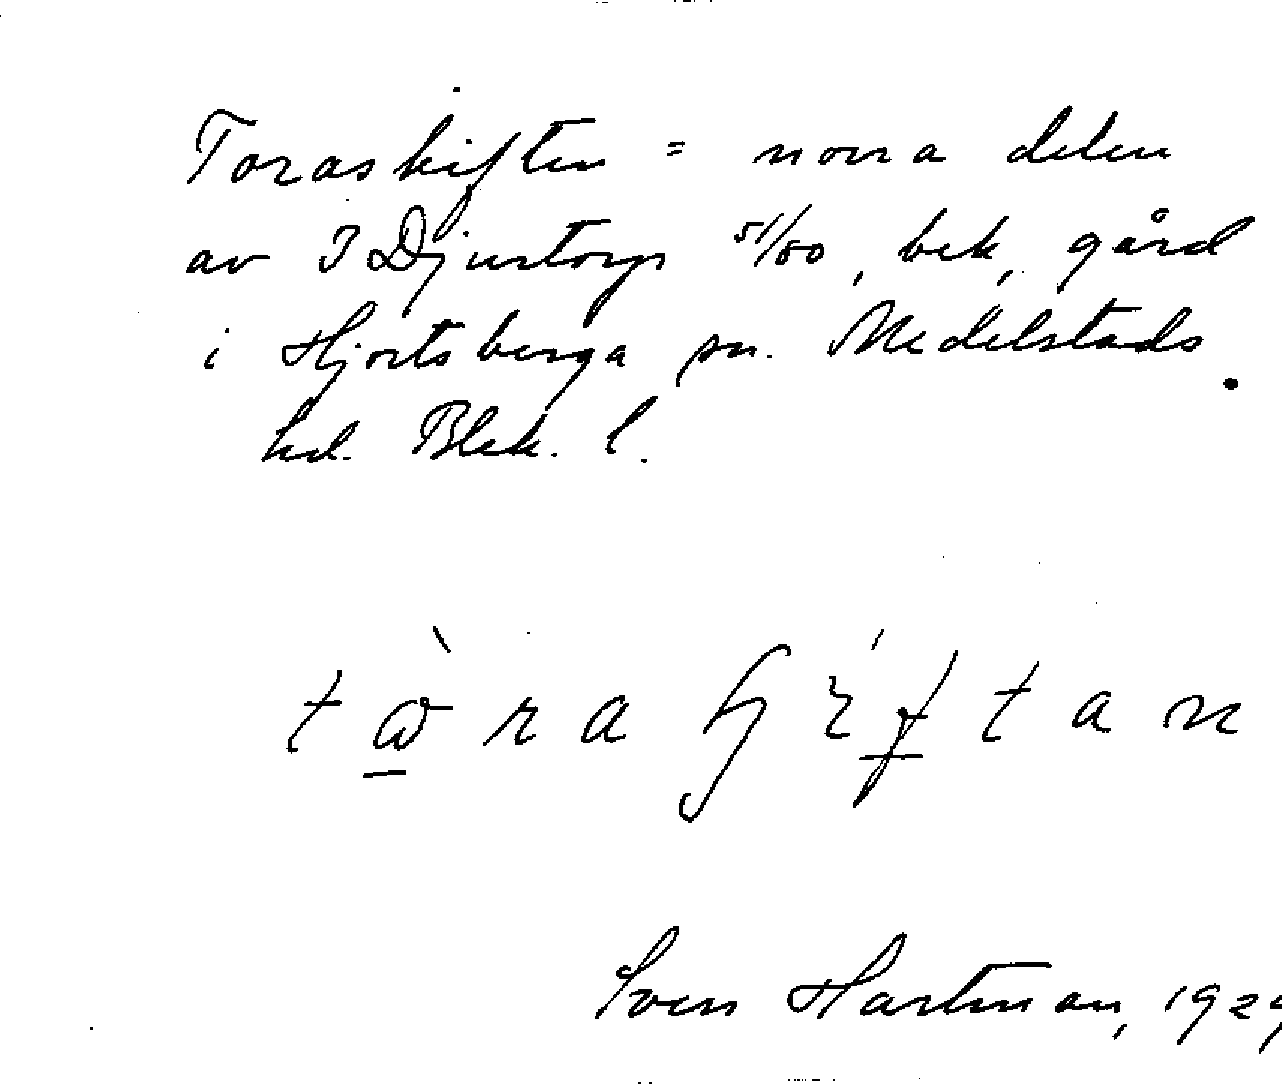 Toraskiften = norra delen
av I Djurtorps 51/80, bek. gård
i Hjortsberga sn. Medelstads
hd. Blek. l.
Sven Hartman, 1929